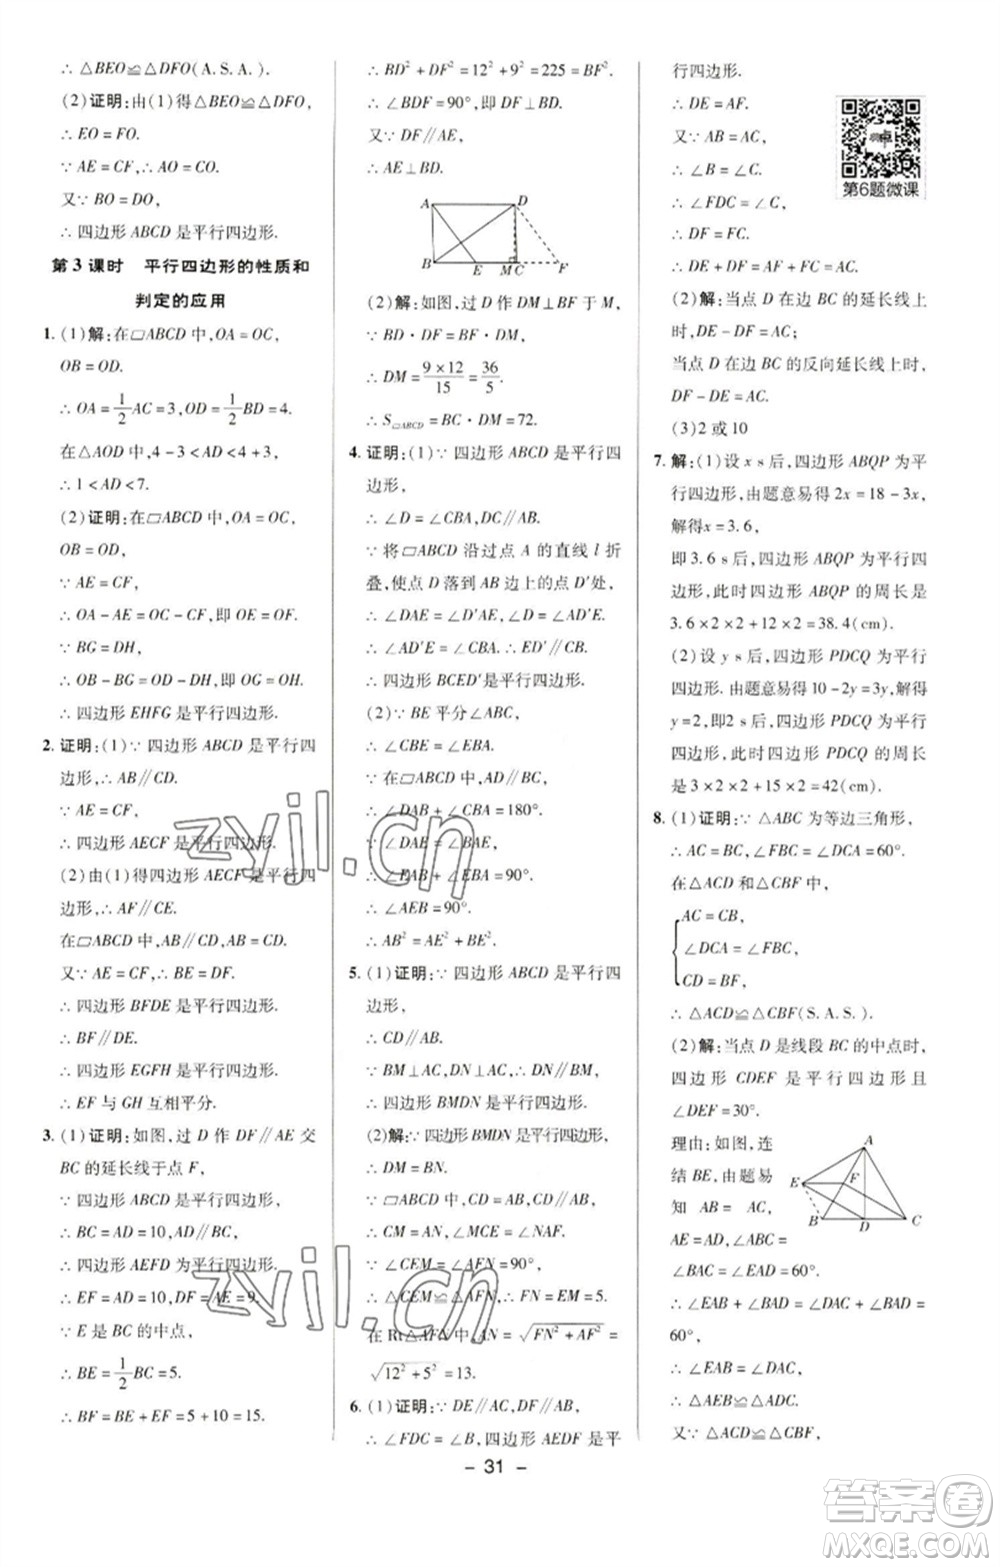 ∴ △BEO≌△DFO(A. S. A.).
(2)证明:由(1)得△BEO≌△DFO,
∴ EO = FO.
∵ AE = CF, ∴ AO = CO.
又∵ BO = DO,
∴ 四边形 ABCD 是平行四边形.
第 3 课时 平行四边形的性质和
判定的应用
1. (1)解:在▱ABCD 中,OA = OC,
OB = OD.
∴ OA = 1/2 AC = 3,OD = 1/2 BD = 4.
在△AOD 中,4 - 3 < AD < 4 + 3,
∴ 1 < AD < 7.
(2)证明:在▱ABCD 中,OA = OC,
OB = OD,
∵ AE = CF,
∴ OA - AE = OC - CF,即 OE = OF.
∵ BG = DH,
∴ OB - BG = OD - DH,即 OG = OH.
∴ 四边形 EHFG 是平行四边形.
2. 证明:(1)∵ 四边形 ABCD 是平行四
边形,∴ AB∥CD.
∵ AE = CF,
∴ 四边形 AECF 是平行四边形.
(2)由(1)得四边形 AECF 是平行四
边形,∴ AF∥CE.
在▱ABCD 中,AB∥CD,AB = CD.
又∵ AE = CF,∴ BE = DF.
∴ 四边形 BFDE 是平行四边形.
∴ BF∥DE.
∴ 四边形 EGFH 是平行四边形.
∴ EF 与 GH 互相平分.
3. (1)证明:如图,过 D 作 DF∥AE 交
BC 的延长线于点 F,
∵ 四边形 ABCD 是平行四边形,
∴ BC = AD = 10,AD∥BC.
∴ 四边形 AEFD 为平行四边形.
∴ EF = AD = 10,DF = AE = 9.
∵ E 是 BC 的中点,
∴ BE = 1/2 BC = 5.
∴ BF = BE + EF = 5 + 10 = 15.
∴ BD² + DF² = 12² + 9² = 225 = BF².
∴ ∠BDF = 90°,即 DF⊥BD.
又∵ DF∥AE,
∴ AE⊥BD.
A D
B E M C F
(2)解:如图,过 D 作 DM⊥BF 于 M,
∵ BD · DF = BF · DM,
∴ DM = 9 × 12/15 = 36/5.
∴ S▱ABCD = BC · DM = 72.
4. 证明:(1)∵ 四边形 ABCD 是平行四
边形,
∴ ∠D = ∠CBA,DC∥AB.
∵ 将▱ABCD 沿过点 A 的直线 l 折
叠,使点 D 落到 AB 边上的点 D′处,
∴ ∠DAE = ∠D′AE,∠D = ∠ED′A.
∴ ∠ED′A = ∠CBA. ∴ ED′∥CB.
∴ 四边形 BCED′是平行四边形.
(2)∵ BE 平分∠ABC,
∴ ∠CBE = ∠EBA.
∵ 在▱ABCD 中,AD∥BC,
∴ ∠DAB + ∠CBA = 180°.
∵ ∠DAE = ∠BAE,
∴ ∠EAB + ∠EBA = 90°.
∴ ∠AEB = 90°.
∴ AB² = AE² + BE².
5. (1)证明:∵ 四边形 ABCD 是平行四
边形,
∴ CD∥AB.
∵ BM⊥AC,DN⊥AC,∴ DN∥BM.
∴ 四边形 BMDN 是平行四边形.
(2)解:∵四边形 BMDN 是平行四边形,
∴ DM = BN.
∵ 在▱ABCD 中,CD = AB,CD∥AB,
∴ CM = AN,∠MCE = ∠NAF.
∵ ∠CEM = ∠AFN = 90°,
∴ △CEM≌△AFN. ∴ FN = EM = 5.
在 Rt△AFN 中,AN = √(FN² + AF²) =
√(12² + 5²) = 13.
6. (1)证明:∵ DE∥AC,DF∥AB,
∴ ∠FDC = ∠B,四边形 AEDF 是平
行四边形.
∴ DE = AF.
又∵ AB = AC,
∴ ∠B = ∠C.
∴ ∠FDC = ∠C.
∴ DF = FC.
∴ DE + DF = AF + FC = AC.
第6题微课
(2)解:当点 D 在边 BC 的延长线上
时,DE - DF = AC;
当点 D 在边 BC 的反向延长线上时,
DF - DE = AC.
(3)2 或 10
7. 解:(1)设 x s 后,四边形 ABQP 为平
行四边形,由题意易得 2x = 18 - 3x,
解得x = 3. 6,
即 3. 6 s 后,四边形 ABQP 为平行四
边形,此时四边形 ABQP 的周长是
3. 6 × 2 × 2 + 12 × 2 = 38. 4(cm).
(2)设 y s 后,四边形 PDCQ 为平行
四边形. 由题意易得 10 - 2y = 3y,解得
y = 2,即2 s后,四边形 PDCQ 为平行
四边形,此时四边形 PDCQ 的周长
是 3 × 2 × 2 + 15 × 2 = 42(cm).
8. (1)证明:∵ △ABC 为等边三角形,
∴ AC = BC,∠FBC = ∠DCA = 60°.
在△ACD 和△CBF 中,
AC = CB,
∠DCA = ∠FBC,
CD = BF,
∴ △ACD≌△CBF(S. A. S.).
(2)解:当点 D 是线段 BC 的中点时,
四边形 CDEF 是平行四边形且
∠DEF = 30°.
理由:如图,连
结 BE,由题易
知 AB = AC,
AE = AD,
∠BAC = ∠EAD = 60°,
A
E F
B D C
∴ ∠EAB + ∠BAD = ∠DAC + ∠BAD =
60°,
∴ ∠EAB = ∠DAC,
∴ △AEB≌△ADC.
又∵ △ACD≌△CBF,
- 31 -
zyjl.cn
zyjl.cn
答案圈
MXQE.COM